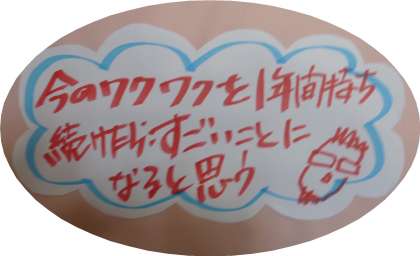 今のワクワクを1年間持ち
続けたら・すごいことに
なると思う